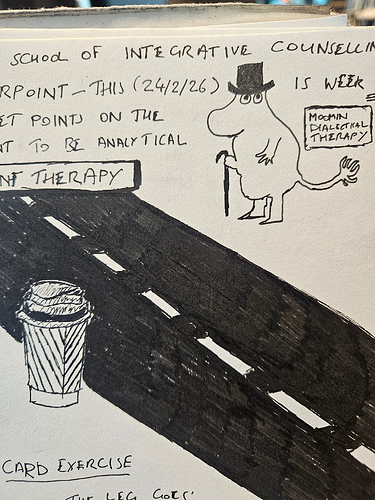 SCHOOL OF INTEGRATIVE COUNSELLIN
RPOINT - THIS (24/2/26) IS WEEK
ET POINTS ON THE
NT TO BE ANALYTICAL
MOOMIN
DIALECTICAL
THERAPY
NT THERAPY
CARD EXERCISE
'THE LEG GOES'